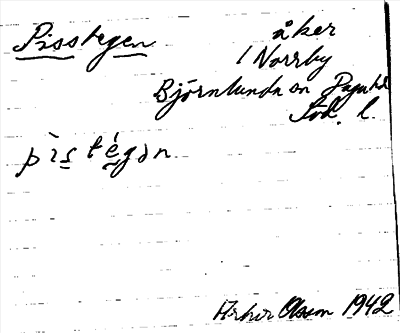 Pissstegen åker
i Norrby
Björnlunda sn Daga hd
Söd. l.
pìstégən
Olsson 1942